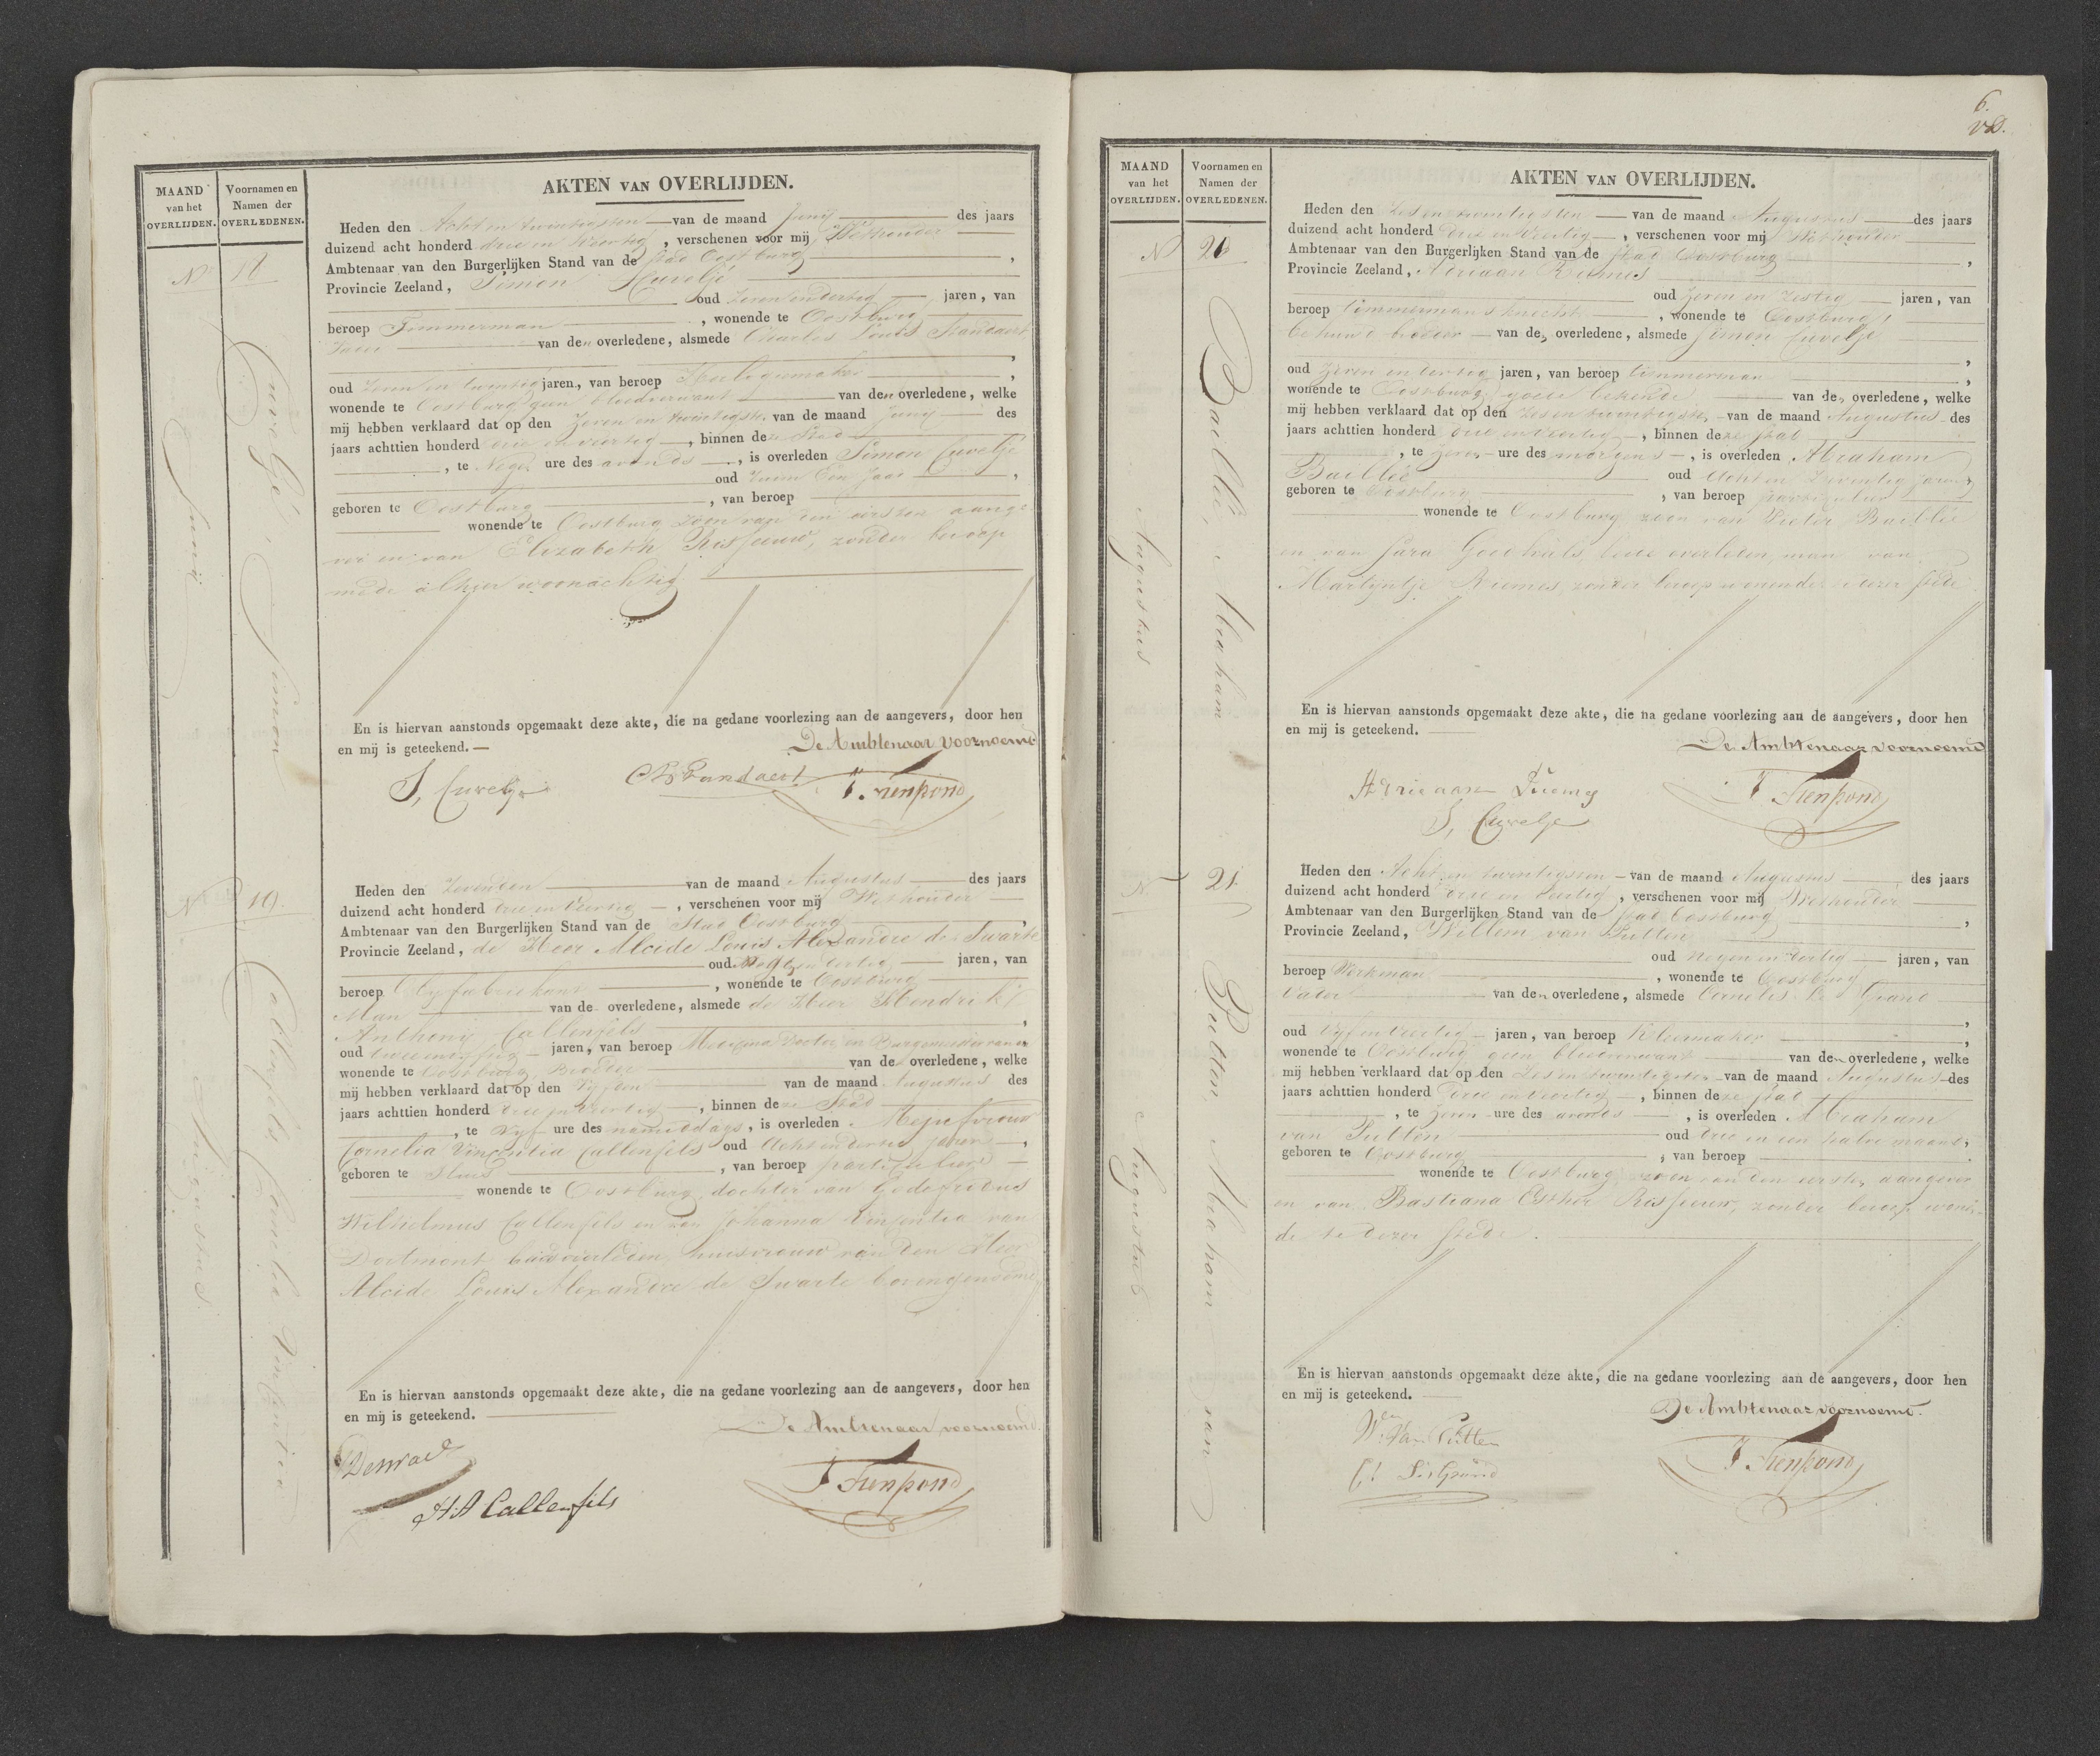 MAAND
van het
OVERLIJDEN.
Voornamen en
Namen der
OVERLEDENEN.
No 18
Cuvelje, Simon
Junij
AKTEN VAN OVERLIJDEN.
Heden den Acht en twintigsten van de maand Junij des jaars
duizend acht honderd drie en veertig, verschenen voor mij Wethouder
Ambtenaar van den Burgerlijken Stand van de Stad Oostburg,
Provincie Zeeland, Simon Cuvelje
oud Zeven en dertig jaren, van
beroep Timmerman, wonende te Oostburg
Vader van den overledene, alsmede Charles Louis Standaert,
oud Zeven en twintig jaren, van beroep,
wonende te Oostburg geen bloedverwant van den overledene, welke
mij hebben verklaard dat op den Zeven en twintigsten van de maand Junij des
jaars achttien honderd drie en veertig, binnen deze Stad
, te Negen ure des avonds, is overleden Simon Cuvelje
oud ruim Een Jaar,
geboren te Oostburg, van beroep
wonende te Oostburg zoon van den eersten aange-
ver en van Elizabeth Risseeuw, zonder beroep
mede alhier woonachtig
En is hiervan aanstonds opgemaakt deze akte, die na gedane voorlezing aan de aangevers, door hen
en mij is geteekend.
De Ambtenaar voornoemd
S, Cuvelje
No 19.
Callenfels Cornelia Vincentia
Augustus
Heden den Zevenden van de maand Augustus des jaars
duizend acht honderd drie en veertig, verschenen voor mij Wethouder
Ambtenaar van den Burgerlijken Stand van de Stad Oostburg,
Provincie Zeeland, de Heer Alcide Louis Alexandre de Swarte
oud en veertig jaren, van
beroep, wonende te Oostburg
Man van de overledene, alsmede de Heer Hendrik
Anthony Callenfels,
oud twee en vijftig jaren, van beroep Medicina Doctor en Burgemeester
wonende te Oostburg, Broeder van de overledene, welke
mij hebben verklaard dat op den Vijfden van de maand Augustus des
jaars achttien honderd drie en veertig, binnen deze Stad
, te Vijf ure des namiddags, is overleden Mejufvrouw
Cornelia Vincentia Callenfels oud Acht en dertig jaren,
geboren te Sluis, van beroep particuliere
wonende te Oostburg, dochter van Godefridus
Wilhelmus Callenfels en van Johanna Vincentia van
Dortmont beide overleden, huisvrouw van den Heer
Alcide Louis Alexandre de Swarte bovengenoemd
En is hiervan aanstonds opgemaakt deze akte, die na gedane voorlezing aan de aangevers, door hen
en mij is geteekend.
De Ambtenaar voornoemd.
H.A Callenfels
6.
MAAND
van het
OVERLIJDEN.
Voornamen en
Namen der
OVERLEDENEN.
No 20
Baillié Abraham
Augustus
AKTEN VAN OVERLIJDEN.
Heden den Zes en twintigsten van de maand Augustus des jaars
duizend acht honderd drie en veertig, verschenen voor mij Wethouder
Ambtenaar van den Burgerlijken Stand van de Stad Oostburg,
Provincie Zeeland, Adriaan Riemes
oud Zeven en zestig jaren, van
beroep timmermansknecht, wonende te Oostburg,
behuwd broeder van den overledene, alsmede Simon Cuvelje,
oud Zeven en dertig jaren, van beroep timmerman,
wonende te Oostburg, goede bekende van den overledene, welke
mij hebben verklaard dat op den Zes en twintigsten van de maand Augustus des
jaars achttien honderd drie en veertig, binnen deze Stad
, te Zeven ure des morgens, is overleden Abraham
Baillié oud Acht en Zeventig jaren,
geboren te Oostburg, van beroep particulier
wonende te Oostburg zoon van Pieter Baillié
en van Sara Goethals, beide overleden, man van
Martijntje Riemes, zonder beroep wonende te dezer stede
En is hiervan aanstonds opgemaakt deze akte, die na gedane voorlezing aan de aangevers, door hen
en mij is geteekend.
De Ambtenaar voornoemd
Adriaan Riemes
S, Cuvelje
No 21.
Putten Abraham van
Augustus
Heden den Acht en twintigsten van de maand Augustus des jaars
duizend acht honderd drie en veertig, verschenen voor mij Wethouder
Ambtenaar van den Burgerlijken Stand van de Stad Oostburg,
Provincie Zeeland, Willem van Putten
oud negen en veertig jaren, van
beroep Werkman, wonende te Oostburg
Vader van den overledene, alsmede Cornelis Le Grand,
oud Vijf en veertig jaren, van beroep Kleermaker,
wonende te Oostburg geen bloedverwant van den overledene, welke
mij hebben verklaard dat op den Zes en twintigsten van de maand Augustus des
jaars achttien honderd drie en veertig, binnen deze stad
, te Zeven ure des avonds, is overleden Abraham
van Putten oud drie en een halve maand,
geboren te Oostburg, van beroep
wonende te Oostburg, zoon van den eersten aangever
en van Bastiana Esther Risseeuw, zonder beroep wonen-
de te dezer stede.
En is hiervan aanstonds opgemaakt deze akte, die na gedane voorlezing aan de aangevers, door hen
en mij is geteekend.
De Ambtenaar voornoemd.
Wem Van Putten